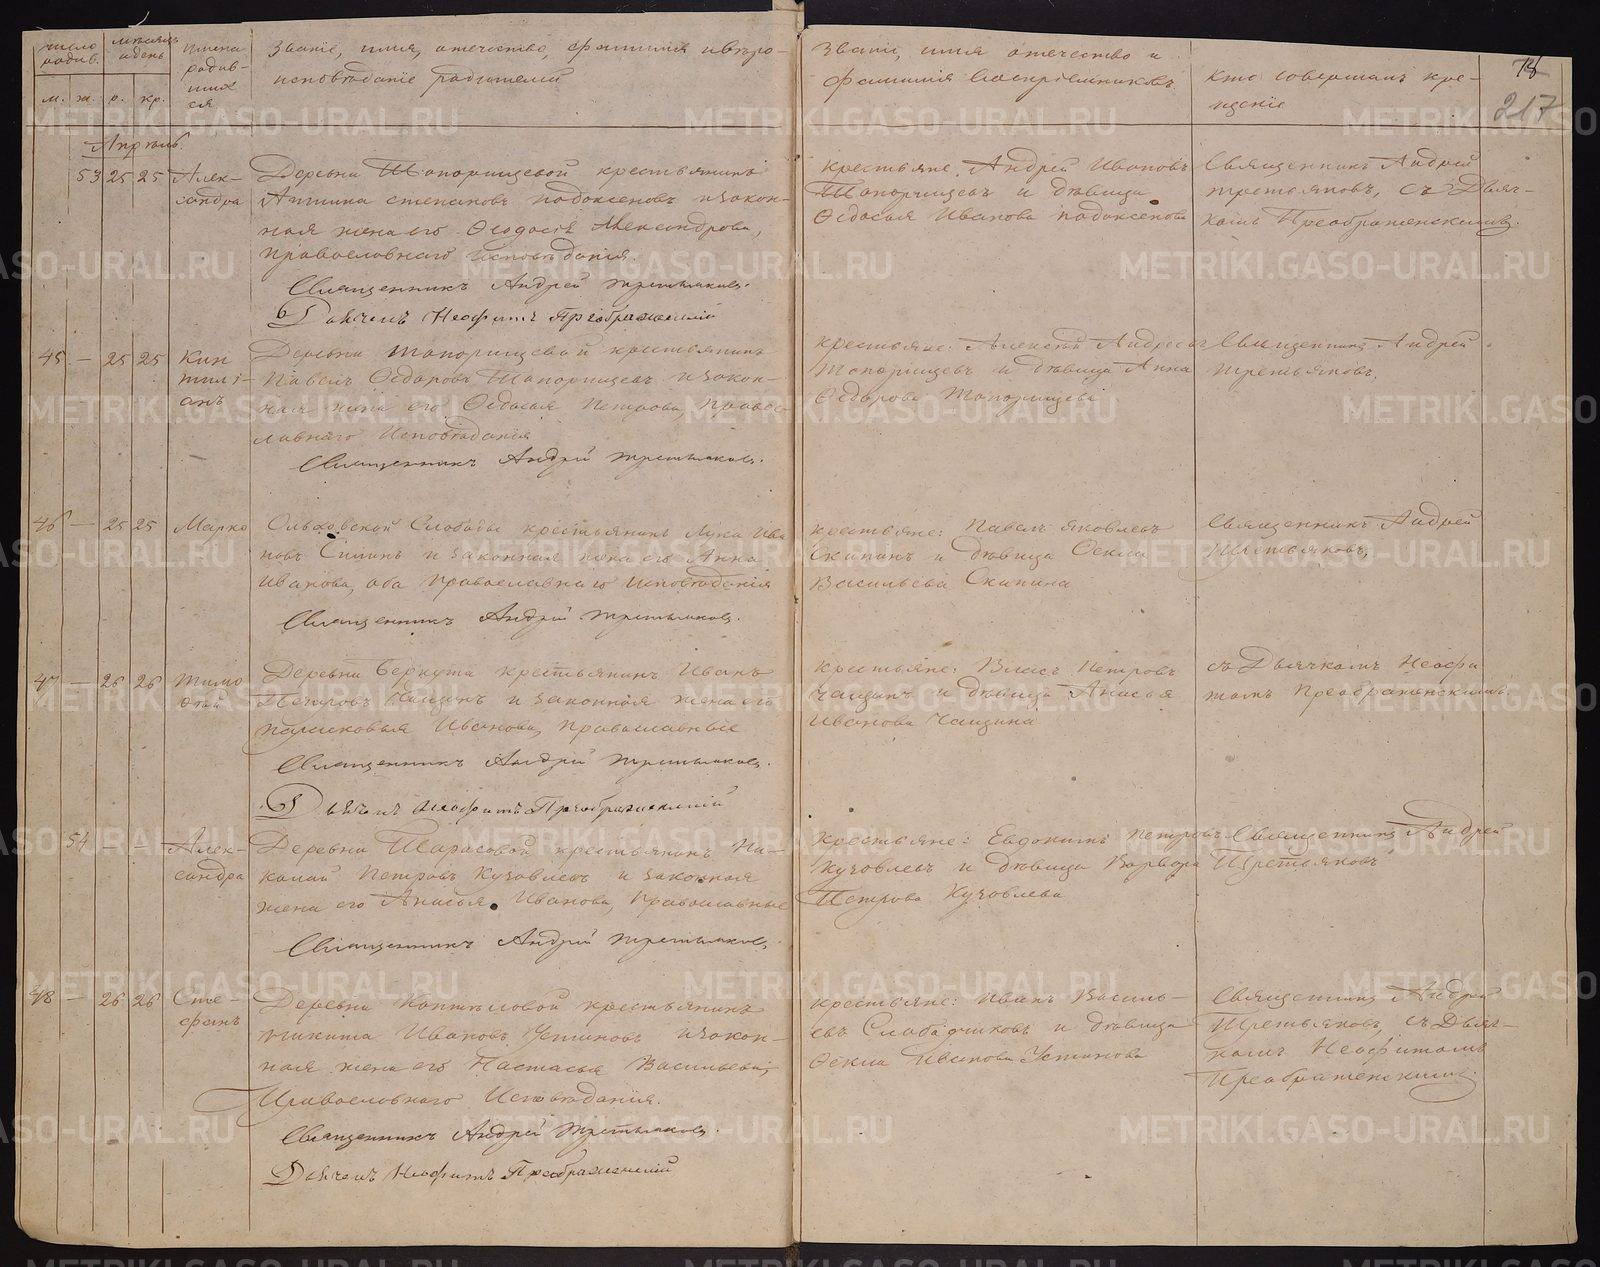 число родив.
мѣсяцъ и день
имена родив-
шихся
Званіе, имя, отечество, фамилія и вѣро-
исповѣданіе родителей
Званіе, имя отечество и
фамилія воспріемниковъ
кто совершалъ кре-
щеніе
217
м. ж. р. кр.
Апрель
53 25 25 Алек-
сандра
Деревни Топорищевой крестьянинъ
степановъ и закон-
ная жена его Ѳеодосія Александрова,
Православнаго Исповѣданія.
Священникъ Андрей Третьяковъ.
Дьячекъ Неофитъ Преображенскій
крестьяне, Андрей Ивановъ
Топорищевъ и дѣвица
Ѳедосья Иванова
Священникъ Андрей
третьяковъ, съ Дьяч-
комъ Преображенскимъ.
45 — 25 25 Кин
тилі-
анъ
Деревни Топорищевой крестьянинъ
Павелъ Ѳедоровъ Топорищевъ и закон-
ная жена его Ѳедосья Петрова, Правос-
лавнаго Исповѣданія
Священникъ Андрей Третьяковъ.
крестьяне: Алексѣй Андреевъ
Топорищевъ и дѣвица Анна
Ѳедорова Топорищева
Священникъ Андрей
третьяковъ,
46 — 25 25 Марко
Ольховской Слободы крестьянинъ Лука Ива
новъ и законная жена его Анна
Иванова, оба Православнаго Исповѣданія
Священникъ Андрей Третьяковъ.
крестьяне: Павелъ Яковлевъ
Скипинъ и дѣвица Ѳекла
Васильева Скипина
Священникъ Андрей
Третьяковъ,
47 — 26 26 Тимо
ѳей
Деревни Беркута крестьянинъ Иванъ
Петровъ Чащинъ и законная жена его
Парасковья Иванова, православные
Священникъ Андрей Третьяковъ.
Дьячекъ Неофитъ Преображенскій
крестьяне: Власъ Петровъ
Чащинъ и дѣвица Анисья
Иванова Чащина
съ Дьячкомъ Неофи
томъ Преображенскимъ,
54 — — Алек-
сандра
Деревни Тарасовой крестьянинъ Ни-
колай Петровъ Кузовлевъ и законная
жена его Анисья Иванова, Православные
Священникъ Андрей Третьяковъ.
крестьяне: Евдокимъ Петровъ
Кузовлевъ и дѣвица Варвара
Петрова Кузовлева
Священникъ Андрей
Третьяковъ
48 — 26 26 Сте-
фанъ
Деревни Коптѣловой крестьянинъ
никита Ивановъ Устиновъ и закон-
ная жена его Настасья Васильева,
Православнаго Исповѣданія.
Священникъ Андрей Третьяковъ.
Дьячекъ Неофитъ Преображенскій
крестьяне: Иванъ Василь-
евъ Слободчиковъ и дѣвица
Ѳекла Иванова Устинова
Священникъ Андрей
Третьяковъ, съ Дьяч-
комъ Неофитомъ
Преображенскимъ.
METRIKI.GASO-URAL.RU